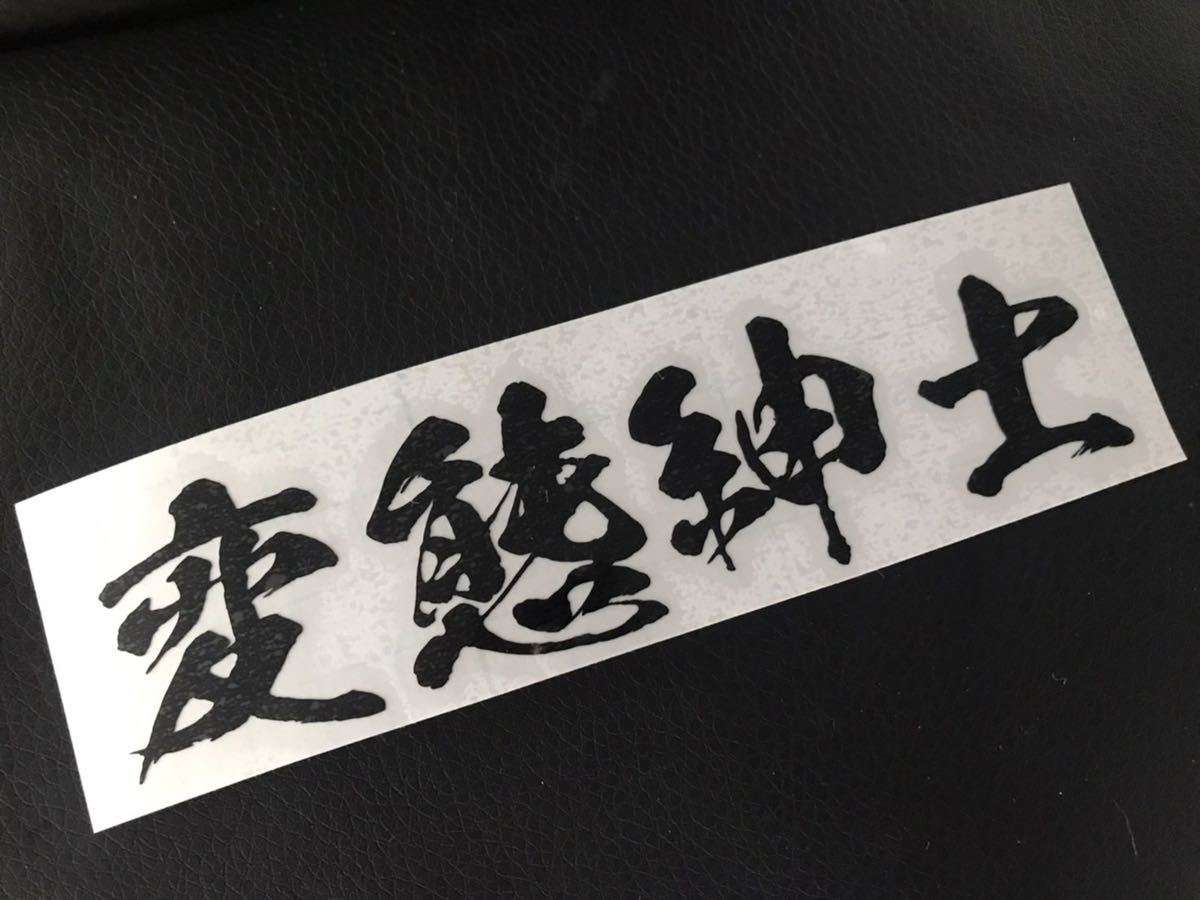 変態紳士